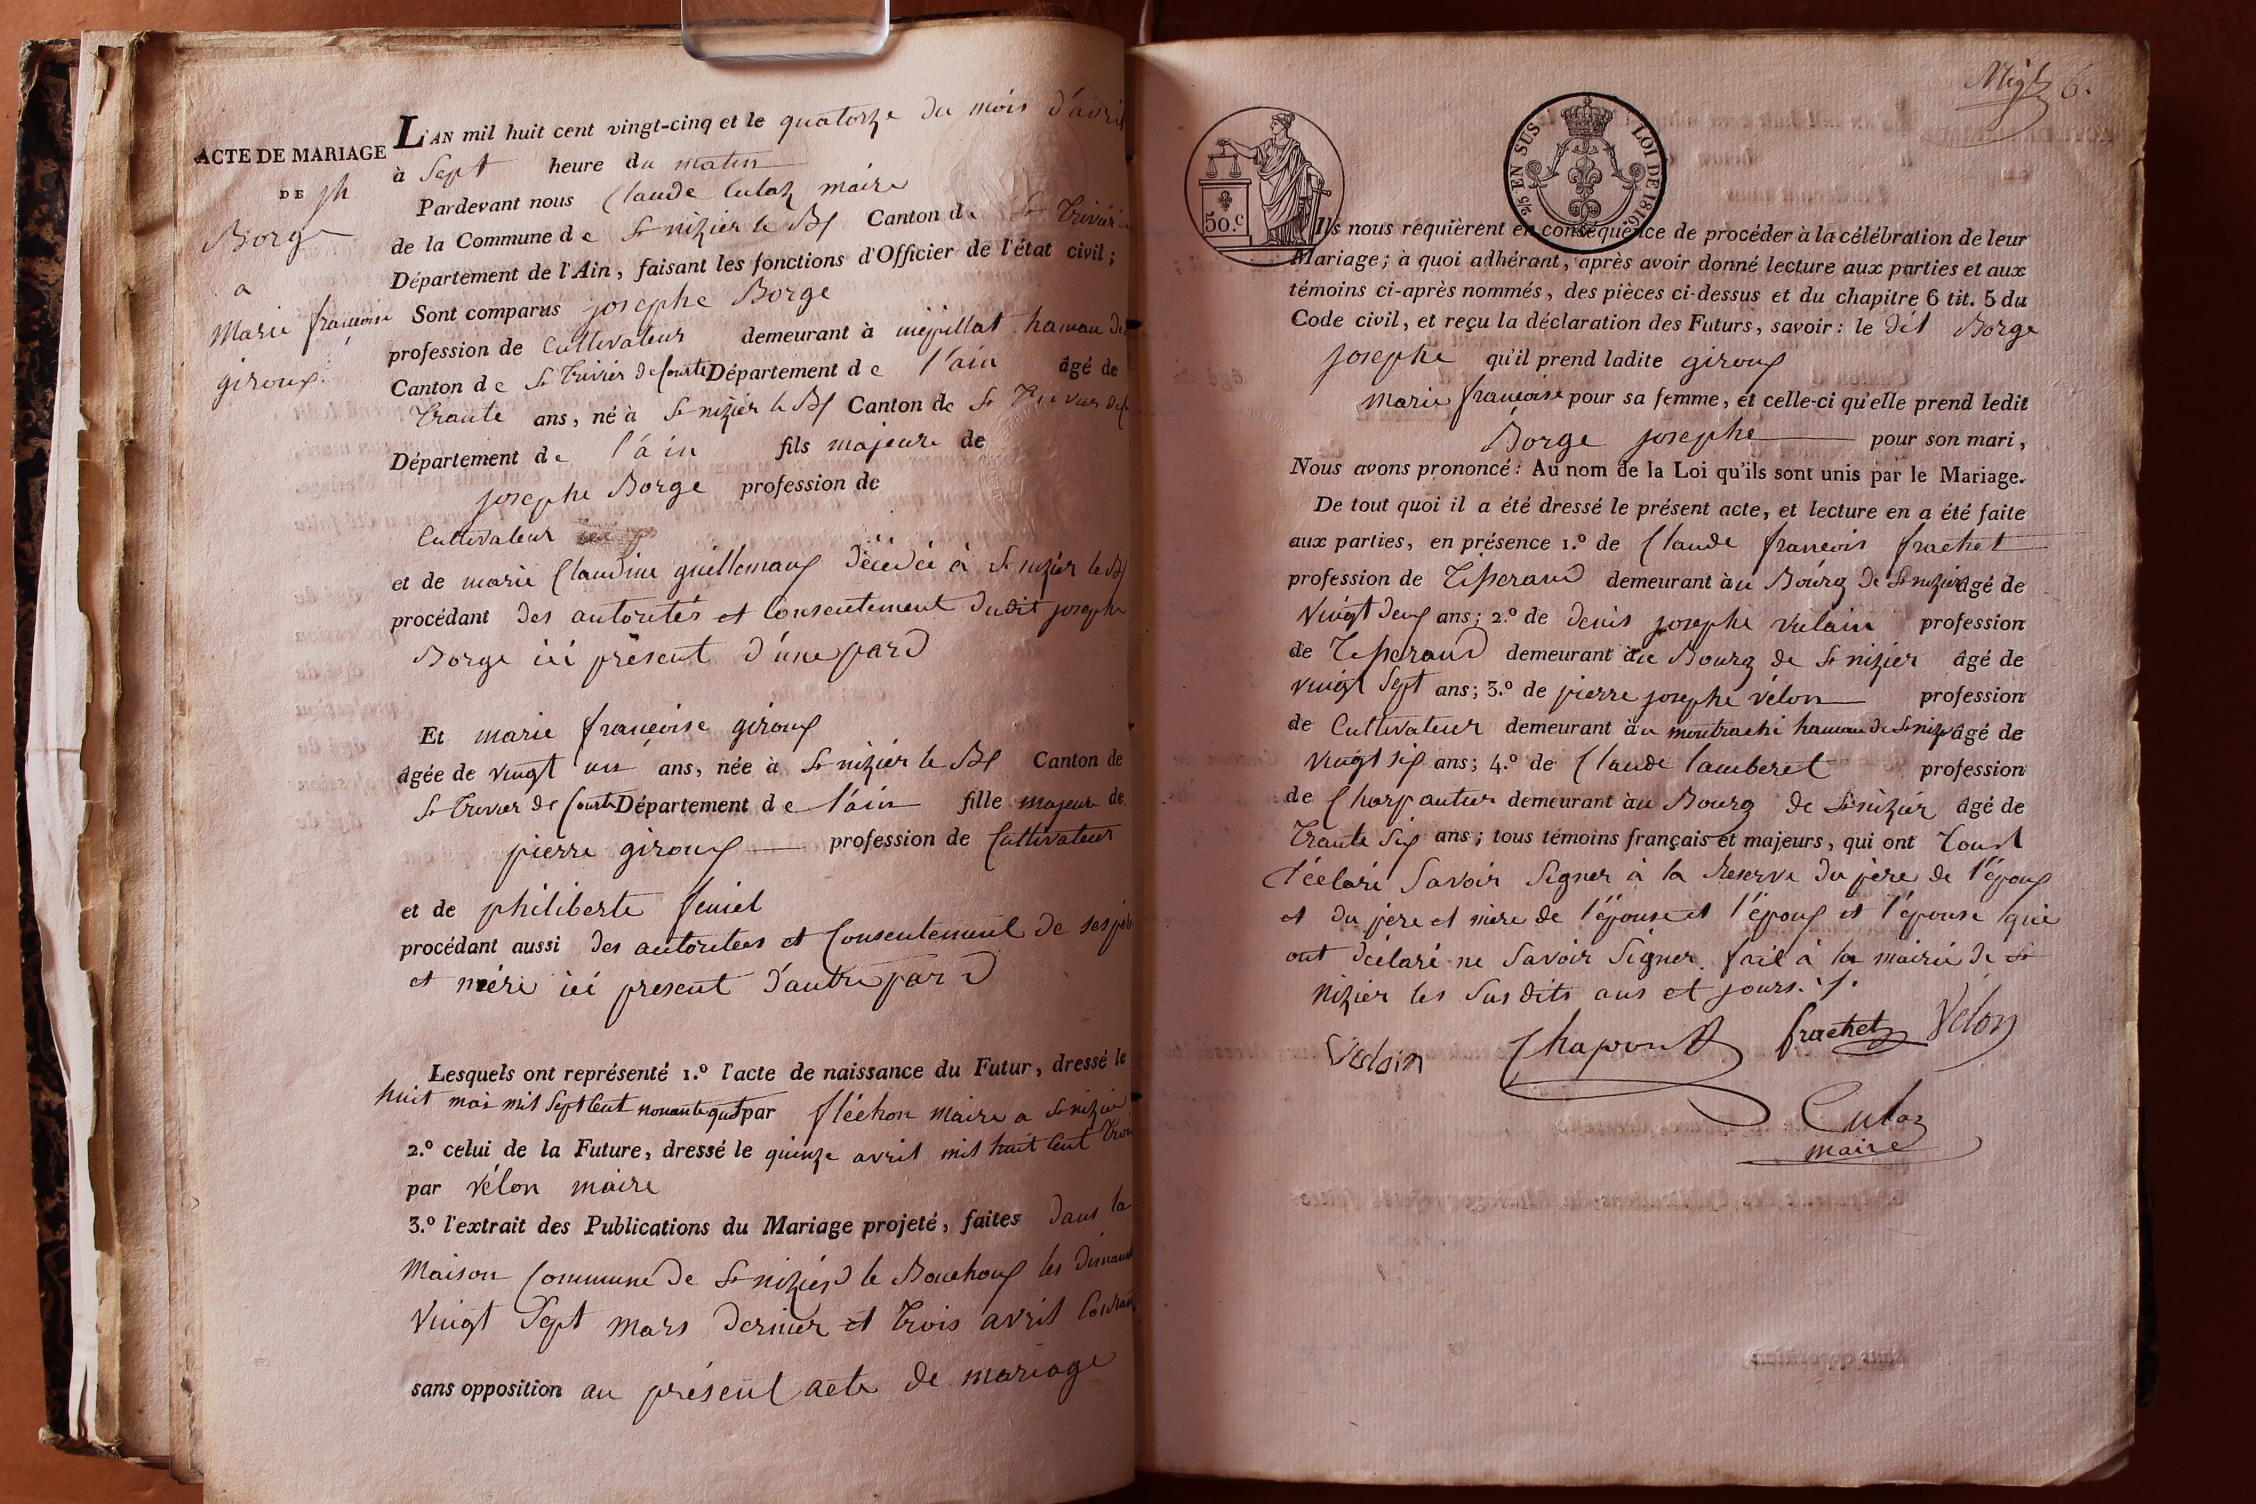 ACTE DE MARIAGE
DE jh
Borge
a
Marie françoise
giroux
L'AN mil huit cent vingt-cinq et le quatorze du mois d'avril
à Sept heure du matin
Pardevant nous Claude Culaz maire
de la Commune de St nizier le Bx Canton de St Trivier
Département de l'Ain, faisant les fonctions d'Officier de l'état civil;
Sont comparus josephe Borge
profession de Cultivateur demeurant à mépillat hamau de
Canton de St Trivier de Courte Département de l'ain âgé de
Trante ans, né à St nizier le Bx Canton de St Trivier de
Département de l'ain fils majeure de
josephe Borge profession de
Cultivateur
et de marie Claudine guillemaux décédée à St nizier le Bx
procédant des autorités et Consentement dudit josephe
Borge ici présent d'une par D
Et marie françoise giroux
âgée de vingt un ans, née à St nizier le Bx Canton de
St Trivier de Courte Département de l'ain fille majeur de
pierre giroux profession de Cultivateur
et de philiberte
procédant aussi des autoritees et Consentement de ses
et mére ici présent d'autre par D
Lesquels ont représenté 1.º l'acte de naissance du Futur, dressé le
huit mai mil Sept Cent nonante par fléchon maire a St nizier
2.º celui de la Future, dressé le quinze avril mil huit Cent trois
par vélon maire
3.º l'extrait des Publications du Mariage projeté, faites dans la
Maison Commune de St nizier le Bouchoux les dimanche
Vingt Sept mars dernier et trois avril Courant
sans opposition au présent acte de mariage
6.
50.C
2/5 EN SUS
LOI DE 1816.
Ils nous requièrent en conséquence de procéder à la célébration de leur
Mariage; à quoi adhérant, après avoir donné lecture aux parties et aux
témoins ci-après nommés, des pièces ci-dessus et du chapitre 6 tit. 5 du
Code civil, et reçu la déclaration des Futurs, savoir: le dit Borge
josephe qu'il prend ladite giroux
marie françoise pour sa femme, et celle-ci qu'elle prend ledit
Borge josephe pour son mari,
Nous avons prononcé: Au nom de la Loi qu'ils sont unis par le Mariage.
De tout quoi il a été dressé le présent acte, et lecture en a été faite
aux parties, en présence 1.º de Claude francois frachet
profession de Tisserand demeurant àu Bourg de St nizier âgé de
Vingt deux ans; 2.º de denis josephe vulain profession
de Tisserand demeurant àu Bourg de St nizier âgé de
vingt Sept ans; 3.º de pierre josephe vélon profession
de Cultivateur demeurant àu montrachi hamau de St nizier âgé de
Vingt six ans; 4.º de Claude lamberet profession
de Charpantier demeurant àu Bourg de St nizier âgé de
Trante Six ans; tous témoins français et majeurs, qui ont Tout
déclaré Savoir Signer à la Reserve du père de l'époux
et du père et mère de l'épouse et l'époux et l'épouse qui
ont déclaré ne Savoir Signer. fait à la mairie de St
nizier les Susdits ans et jours.
frachet Vélon
Culaz
maire